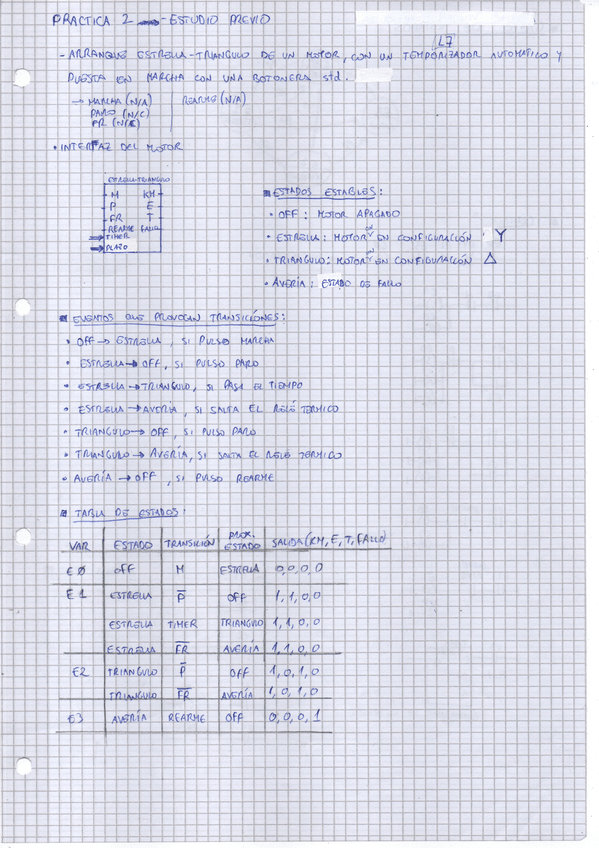 PRACTICA 2 - ESTUDIO PREVIO
L7
- ARRANQUE ESTRELLA-TRIANGULO DE UN MOTOR, CON UN TEMPORIZADOR AUTOMATICO Y
PUESTA EN MARCHA CON UNA BOTONERA std.
→ MARCHA (N/A) REARME (N/A)
PARO (N/C)
FR (N/C)
• INTERFAZ DEL MOTOR
ESTRELLA-TRIANGULO
M KM
P E
FR T
REARME FALLO
TIMER
PLAZO
ESTADOS ESTABLES:
• OFF: MOTOR APAGADO
• ESTRELLA: MOTOR on EN CONFIGURACIÓN Y
• TRIANGULO: MOTOR on EN CONFIGURACIÓN △
• AVERIA: ESTADO DE FALLO
EVENTOS QUE PROVOCAN TRANSICIONES:
• OFF → ESTRELLA, SI PULSO MARCHA
• ESTRELLA → OFF, SI PULSO PARO
• ESTRELLA → TRIANGULO, SI PASA EL TIEMPO
• ESTRELLA → AVERIA, SI SALTA EL RELÉ TERMICO
• TRIANGULO → OFF, SI PULSO PARO
• TRIANGULO → AVERÍA, SI SALTA EL RELE TERMICO
• AVERÍA → OFF, SI PULSO REARME
TABLA DE ESTADOS:
VAR ESTADO TRANSICIÓN PROX. ESTADO SALIDA (KM, E, T, FALLO)
E0 OFF M ESTRELLA 0,0,0,0
E1 ESTRELLA P̅ OFF 1,1,0,0
ESTRELLA TIMER TRIANGULO 1,1,0,0
ESTRELLA F̅R̅ AVERÍA 1,1,0,0
E2 TRIANGULO P̅ OFF 1,0,1,0
TRIANGULO F̅R̅ AVERÍA 1,0,1,0
E3 AVERÍA REARME OFF 0,0,0,1